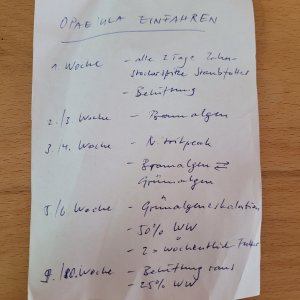 OPAE ULA EINFAHREN
1. Woche - alle 2 Tage Zahn-
stocherspitze Staubfutter
- Belüftung
2./3 Woche - Braunalgen
3./4. Woche - Nitritpeak
- Braunalgen ⇄
Grünalgen
5./6. Woche - Grünalgeneskalation
- 50% WW
- 2x wöchentlich Futter
9./10. Woche - Belüftung raus
- 25% WW